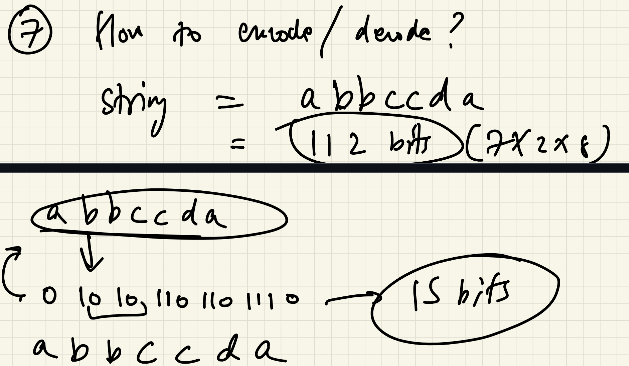 ⑦ How to encode / decode?
string = abbccda
= 112 bits (7x2x8)
abbccda
0 10 10 110 110 111 0 → 15 bits
a b b c c d a